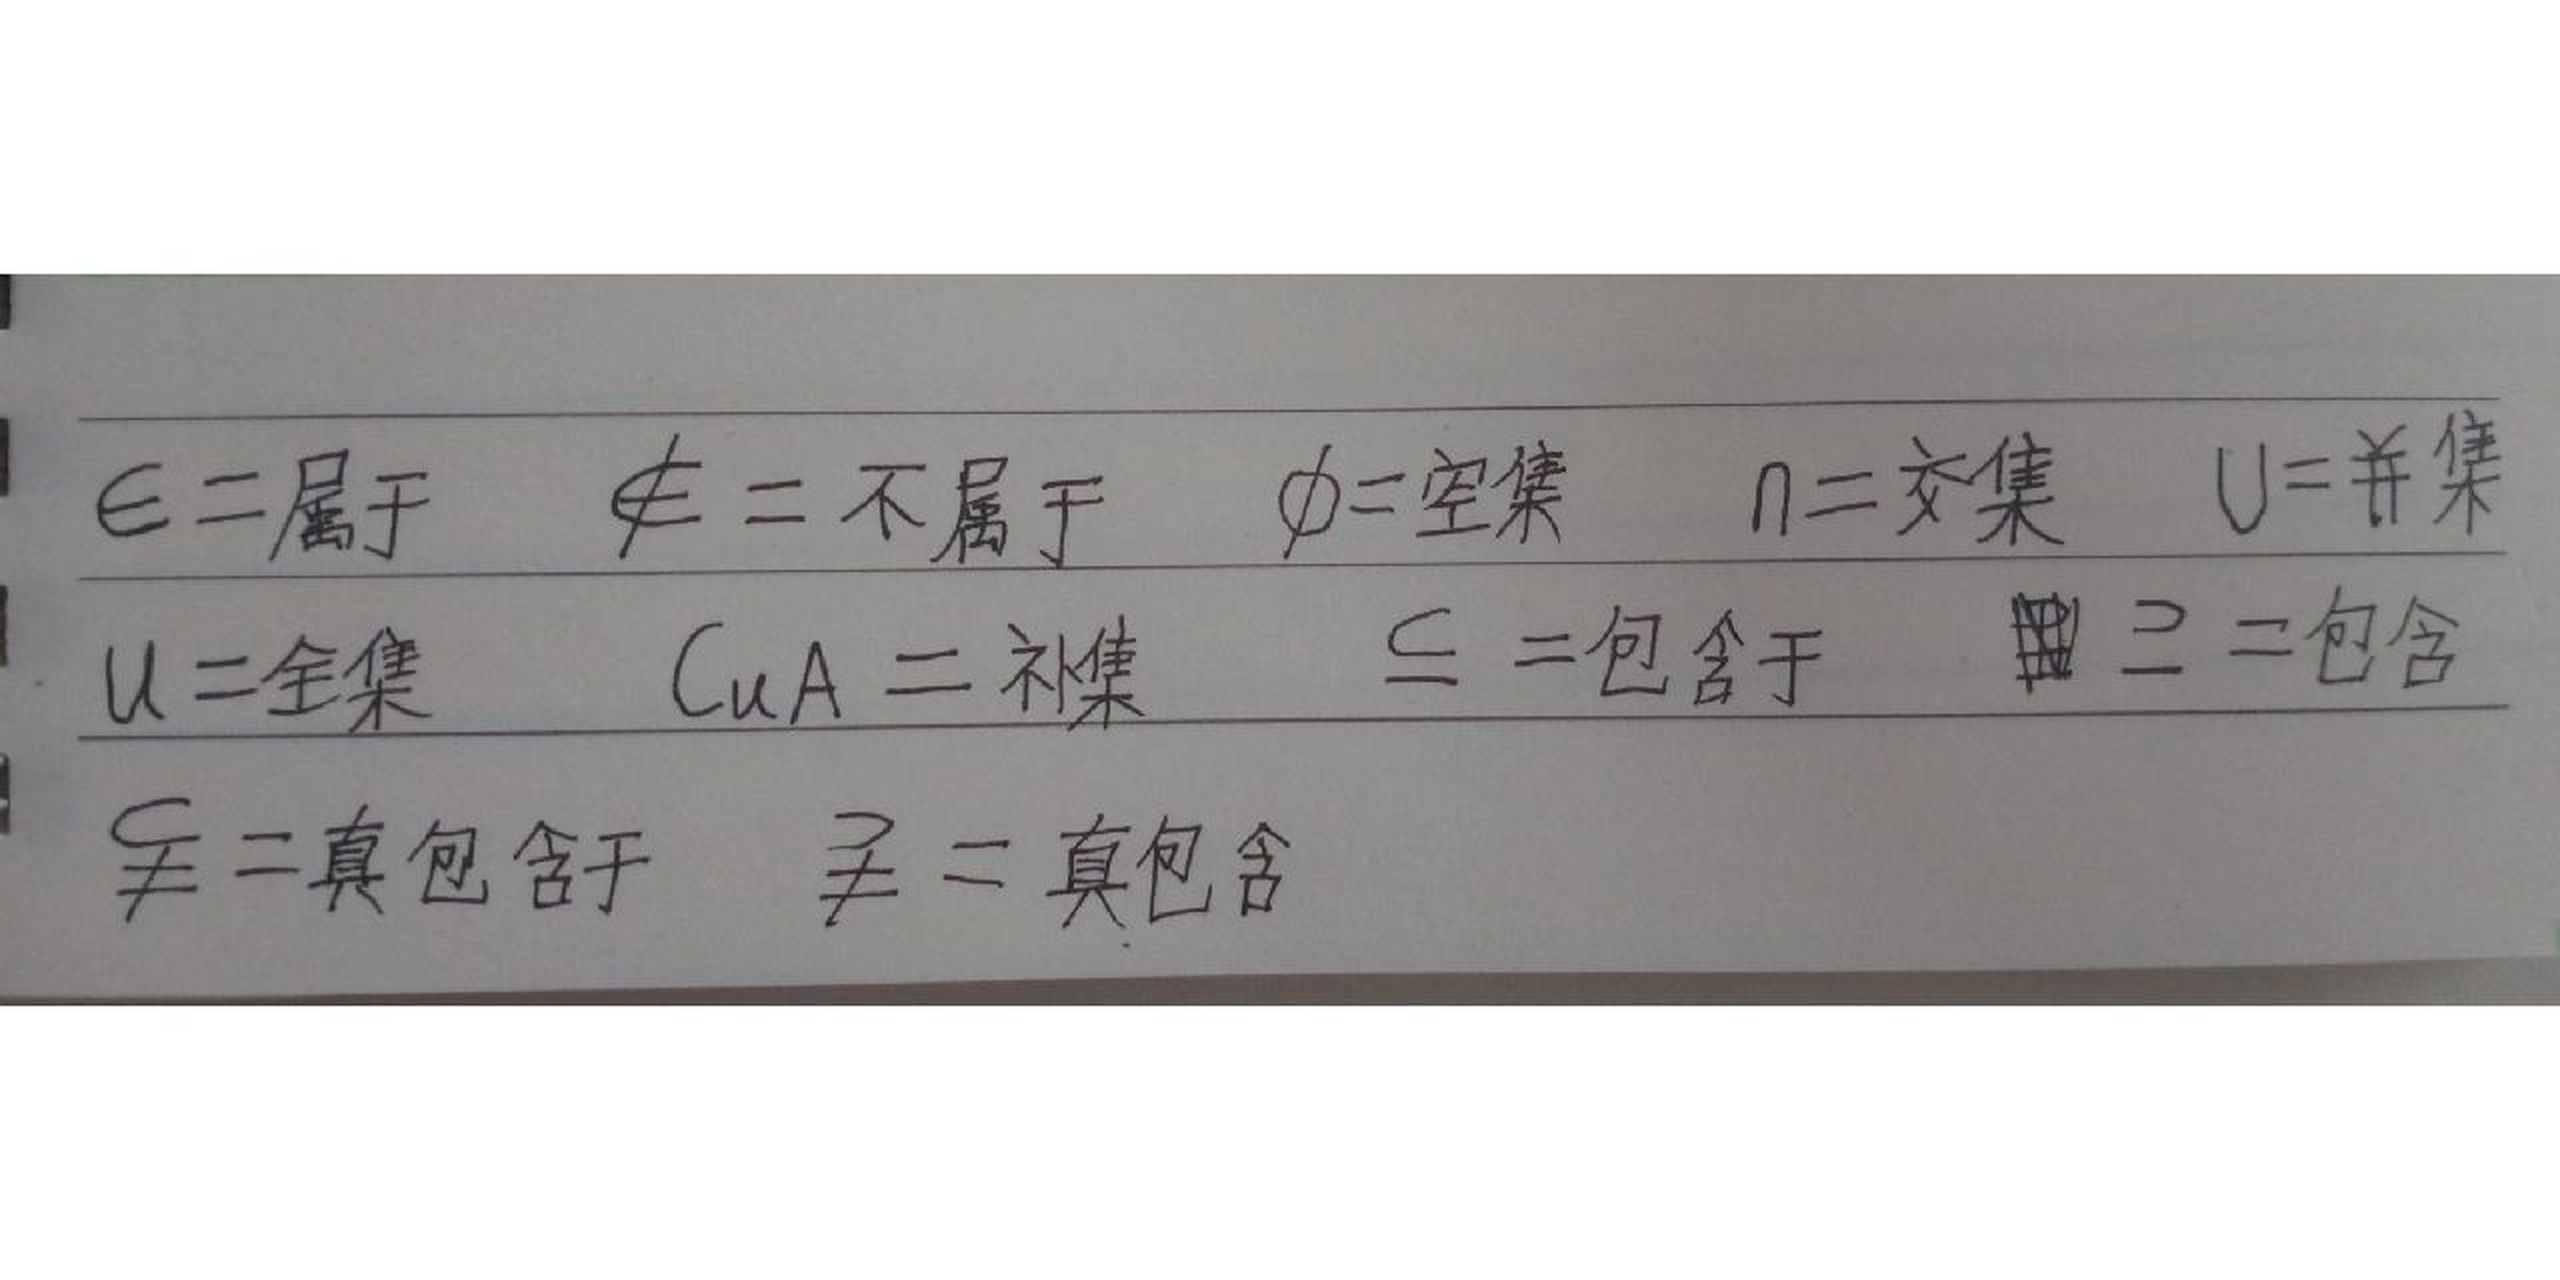 ∈=属于 ∉=不属于 ∅=空集 ∩=交集 ∪=并集
U=全集 CuA=补集 ⊆=包含于 ⊇=包含
⫋=真包含于 ⫌=真包含